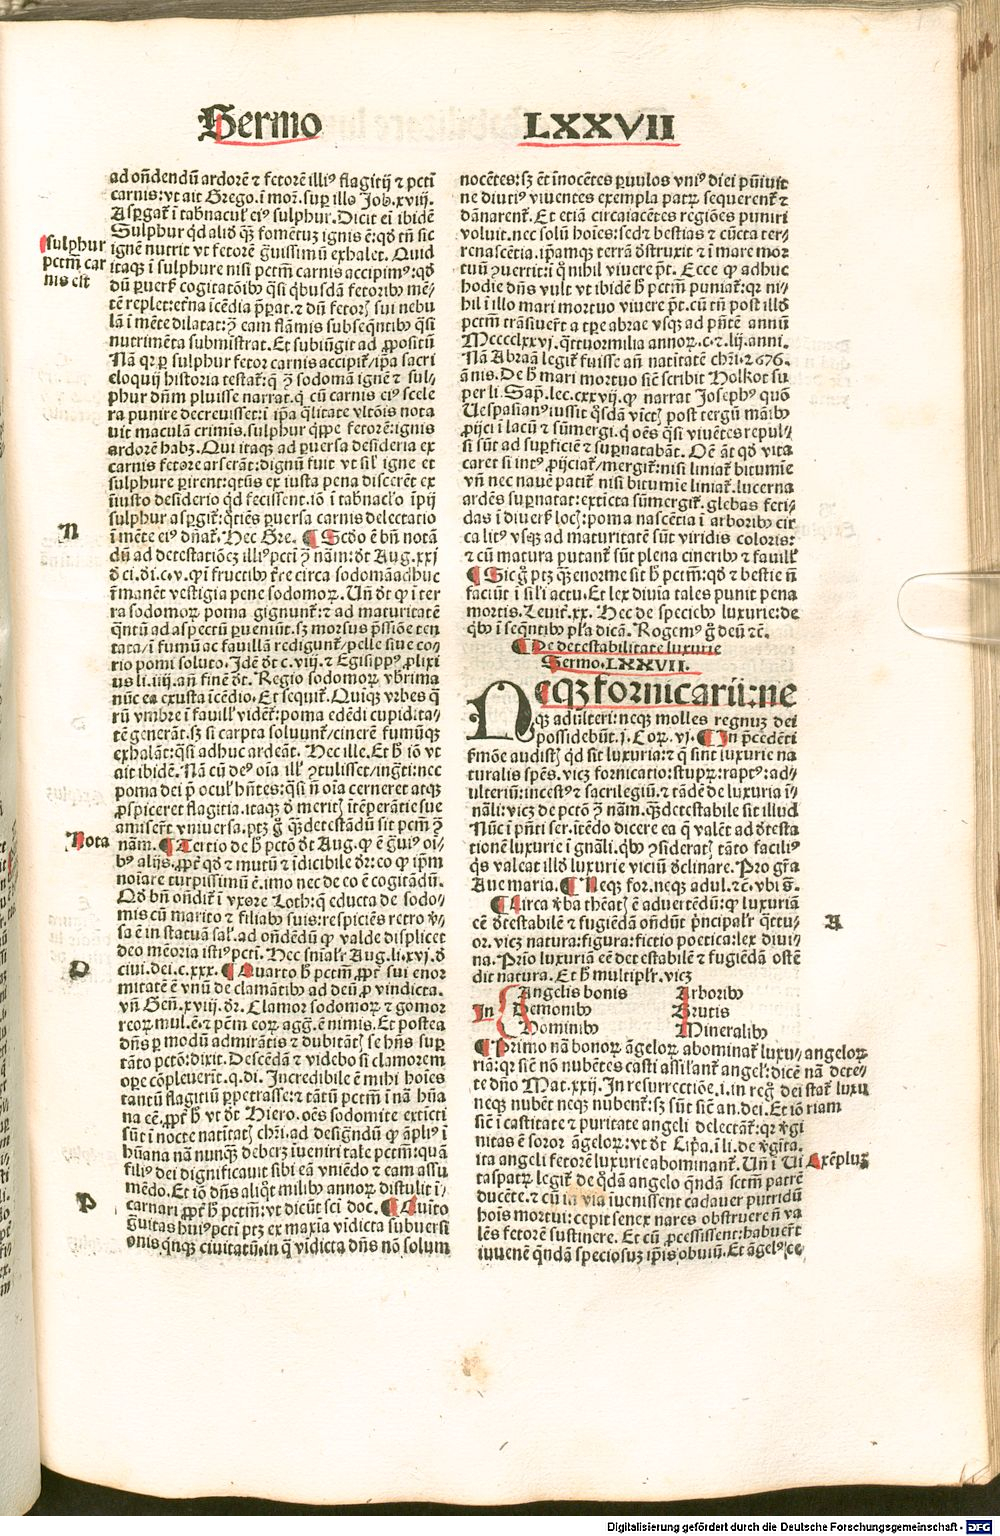 Sermo LXXVII
ad oñdendũ ardorẽ ⁊ fetorẽ illiꝰ flagitij ⁊ pctĩ
carnis: vt ait Grego. ĩ mor̃. suꝑ illo Job. xviij.
Aspergat̃ ĩ tabnacul̃ eiꝰ sulphur. Dicit eĩ ibidẽ
Sulphur qd̃ aliđ q̃ȝ fomẽtuȝ ignis ẽ: qđ tñ sic
ignẽ nutrit vt fetorẽ g̃uissimũ exhalet. Quid
itaqȝ ĩ sulphure nisi pctm̃ carnis accipimꝰ: qđ
sulphur
pctm̃ car
nis est
tẽ replet: et̃na ĩcẽdia p̃ꝑat. ⁊ dũ fetorꝫ sui nebu
lã ĩ mẽte dilatat: ꝯ eam flãmis subseq̃ntibꝰ q̃si
nutrimẽta submistrat. Et subiũgit ad ꝓpositũ
Nã qꝛ ꝑ sulphur fetor carnis accipit̃/ip̃a sacri
eloquij historia testat̃: q̃ ꝯ sodomã ignẽ ⁊ sul⸗
phur dñm pluisse narrat. q̃ cũ carnis eiꝰ scele
ra punire decreuisset: ĩ ip̃a q̃litate vltõis nota
uit maculã crimis. sulphur q̃ppe fetorẽ: ignis
ardorẽ habȝ. Qui itaqȝ ad ꝑuersa desideria ex
carnis fetore arserãt: dignũ fuit vt sil̃ igne et
sulphure ꝑirent: qtꝰ ex iusta pena discerẽt ex
ĩiusto desiderio qđ fecissent. iõ ĩ tabnaclo ĩpij
sulphur aspgit̃: q̃tiẽs ꝑuersa carnis delectatio
ĩ mẽte eiꝰ dñat̃. Hec Gre. ¶ Scđo ẽ bñ notã
N
dũ ad detestatiõeȝ illiꝰ pcti ꝯ nãm: đt Aug. xxj
đ ci. đi. c. v. ꝙ ĩ fructibꝰ t̃re circa sodomã adhuc
ĩmanẽt vestigia pene sodomoꝝ. Uñ đt ꝙ ĩ ter
ra sodomoꝝ poma gignunt̃: ⁊ ad maturitatẽ
q̃ntũ ad aspectũ ꝑueniũt. sȝ morsus p̃ssiõe ten
tata/ĩ fumũ ac fauillã rediguñt/pelle siue co⸗
rio pomi soluto. Idẽ đt c. viij. ⁊ Egisippꝰ ꝓlixi
us li. iiij. añ finẽ đt. Regio sodomoꝝ vbrima
nũc ea exusta ĩcẽdio. Et sequit̃. Quiqȝ vrbes q̃
rũ vmbre ĩ fauill̃ vident̃: poma edẽdi cupidita⸗
tẽ generãt. sȝ si carpta soluunt̃/cinerẽ fumũqȝ
exhalãt: q̃si adhuc ardeãt. Hec ille. Et h̃ iõ vt
ait ibidẽ. Nã cũ deꝰ oĩa ill̃ ꝯtulisset/ing̃ti: nec
poma dei p̃ ocul̃ hñtes: q̃si ñ oĩa cerneret atqȝ
ꝓspiceret flagitia. itaqȝ đ meritꝫ ĩtẽperãtie sue
amiser̃t vniuersa. ptȝ g̃ q̃ȝ detestãdũ sit pctm̃ ꝯ
nãm. ¶ Tertio de h̃ pctõ đt Aug. ꝙ ẽ g̃uiꝰ oĩ⸗
Nota
bꝰ alijs. ꝓpt̃ qđ ⁊ mutũ ⁊ ĩdicibile đr: eo ꝙ ip̃m
noĩare turpissimũ ẽ. imo nec de eo ẽ cogitãdũ.
Qđ bñ oñdit̃ ĩ vxore Loth: q̃ educta de sodo⸗
mis cũ marito ⁊ filiabꝰ suis: respiciẽs retro v̾⸗
sa ẽ in statuã sal̃. ad oñdẽdũ ꝙ valde displicet
deo mẽoria istiꝰ pcti. Hec sñial̃r Aug. li. xvj. đ
ciui. dei. c. xxx. ¶ Quarto h̃ pctm̃ ꝓpt̃ sui enor
O
mitatẽ ẽ vnũ de clamãtibꝰ ad deũ ꝓ vindicta.
vñ Geñ. xviij. đr. Clamor sodomoꝝ ⁊ gomor
reoꝝ mul. ẽ. ⁊ pc̃m eoꝝ agg̃. ẽ nimis. Et postea
dñs ꝑ modũ admirãtis ⁊ dubitãtꝫ se hñs suꝑ
tãto pctõ: dixit. Descẽdã ⁊ videbo si clamorem
oꝑe cõpleuerĩt. q. di. Incredibile ẽ mihi hoĩes
tantũ flagitiũ ꝑpetrasse: ⁊ tãtũ pctm̃ ĩ nã hũa
na eẽ. ꝓpt̃ h̃ vt đt Hiero. oẽs sodomite extĩcti
sũt ĩ nocte natĩtatꝫ chr̃i. ad designdũ ꝙ ãpliꝰ ĩ
hũana nã nunqȝ deberȝ iueniri tale pctm̃: quã
filiꝰ dei dignificauit sibi eã vniẽdo ⁊ eam assu
mẽdo. Et iõ dñs aliq̃t milibꝰ annoꝝ distulit ĩ⸗
carnari ꝓpt̃ h̃ pctm̃: vt dicũt sci doc. ¶ Quĩto
P
g̃uitas huiꝰ pcti ptȝ ex maxia vĩdicta subuersi
onis q̃nqȝ ciuitatũ. in q̃ vĩdicta dñs nõ solum
nocẽtes: sȝ ẽt ĩnocẽtes ꝑuulos vniꝰ diei pũiuit
ne diutiꝰ viuentes exempla patꝝ sequerent̃ ⁊
dãnarent̃. Et etiã circaiacẽtes regiões puniri
voluit. nec solũ hoĩes: sedꝫ bestias ⁊ cũcta ter⸗
renascẽtia. ip̃amqȝ terrã đstruxit ⁊ ĩ mare mor
tuũ ꝯuerrit: ĩ q̃ nihil viuere p̃t. Ecce ꝙ adhuc
hodie dñs vult vt ibidẽ h̃ pctm̃ puniat̃: qꝛ ni⸗
hil ĩ illo mari mortuo viuere p̃t. cũ tñ post illđ
pctm̃ trãsiuer̃t a tp̃e abrae vsqȝ ad pñtẽ annũ
Mcccclxxvj. q̃ttuormilia annoꝝ. c. ⁊. lij. anni.
Nã Abraã legit̃ fuisse añ natĩtatẽ chr̃i. 2676.
ãnis. De h̃ mari mortuo siẽ scribit Holkot su
per li. Sap̃. lec. cxxvij. ꝙ narrat Josephꝰ quõ
Uespasianꝰ iussit q̃sdã victꝫ post tergũ mãibꝰ
ꝓijci ĩ lacũ ⁊ sũmergi. q̃ oẽs q̃si viuẽtes repul⸗
si sũt ad suꝑficiẽ ⁊ suꝑnatabãt. Oẽ ãt qđ vita
caret si intꝰ ꝓijciat̃/mergit̃: nisi liniat̃ bitumĩe
vñ nec nauẽ patit̃ nisi bitumĩe liniat̃. lucerna
ardẽs suꝑnatat: extĩcta sũmergit̃. glebas feti⸗
das ĩ diuers̃ locꝫ: poma nascẽtia ĩ arboribꝰ cir
ca litꝰ vsqȝ ad maturitatẽ sũt viridis coloris:
⁊ cũ matura putant̃ sũt plena cineribꝰ ⁊ fauill̃
¶ Sic g̃ ptȝ q̃ȝ enorme sit h̃ pctm̃: qđ ⁊ bestie ñ
faciũt ĩ sil̃i actu. Et lex diuĩa tales punit pena
mortis. Leuit̃. xx. Hec de speciebꝰ luxurie: de
q̃bꝰ ĩ seq̃ntibꝰ pl̃a dicã. Rogemꝰ g̃ deũ ⁊č.
¶ De detestabilitate luxurie
Sermo. LXXVII.
Neqȝ fornicarij: ne
qȝ adulteri: neqȝ molles regnuȝ dei
possidebũt. j. Coꝝ. vj. ¶ In p̃cedẽti
s̃mõe audistꝫ qđ sit luxuria: ⁊ q̃ sint luxurie na
turalis spẽs. vicȝ fornicatio: stupꝝ: raptꝰ: ad⸗
ulteriũ: incestꝰ ⁊ sacrilegiũ. ⁊ tãdẽ de luxuria ĩ⸗
nãli: vicȝ de pctõ ꝯ nãm. q̃ȝ detestabile sit illud
Nũc ĩ pñti ser. ĩtẽdo dicere ea q̃ valẽt ad đtesta
tionẽ luxurie ĩ gñali. q̃bꝰ ꝯsideratꝫ tãto faciliꝰ
q̃s valeat illđ luxurie viciũ đclinare. Pro gr̃a
Aue maria. ¶ Neqȝ for. neqȝ adul. ⁊č. vbi s̃.
¶ Circa v̾ba theãtꝫ ẽ aduertẽdũ: ꝙ luxuriã
A
eẽ đtestabilẽ ⁊ fugiẽdã oñdũt p̃ncipal̃r q̃ttu⸗
or. vicȝ natura: figura: fictio poetica: lex diui⸗
na. Prĩo luxuriã eẽ detestabilẽ ⁊ fugiẽdã ostẽ
dit natura. Et h̃ multipl̃r. vicȝ
In
Angelis bonis Arboribꝰ
Demonibꝰ Brutis
Hominibꝰ Mineralibꝰ
¶ Primo nã bonoꝝ ãgeloꝝ abominat̃ luxu⸗ angeloꝝ
riã: qꝛ siẽ nõ nubẽtes casti assil̃ant̃ angel̃: dicẽ nã dete⸗
te dño Mat. xxij. In resurrectiõe. i. in reg̃ dei stat̃ luxu
neqȝ nubẽt neqȝ nubent̃: sȝ sũt siẽ an. dei. Et iõ riam
siẽ ĩ castitate ⁊ puritate angeli delectãt̃: qꝛ v̾gi
nitas ẽ soror ãgeloꝝ: vt đt Cip̃a. ĩ li. de v̾gĩta.
ita angeli fetorẽ luxurie abominant̃. Uñ ĩ Ui
Exẽpluȝ
taspatꝝ legit̃ de q̃dã angelo q̃ndã sctm̃ patrẽ
ducẽte. ⁊ cũ ĩa via iuenissent cadauer putridũ
hoĩs mortui: cepit senex nares obstruere ñ va
lẽs fetorẽ sustinere. Et cũ ꝓcessissent: habuer̃t
iuuenẽ q̃ndã speciosuȝ ip̃is obuiũ. Et ãgelꝰ ce
Digitalisierung gefördert durch die Deutsche Forschungsgemeinschaft - DFG